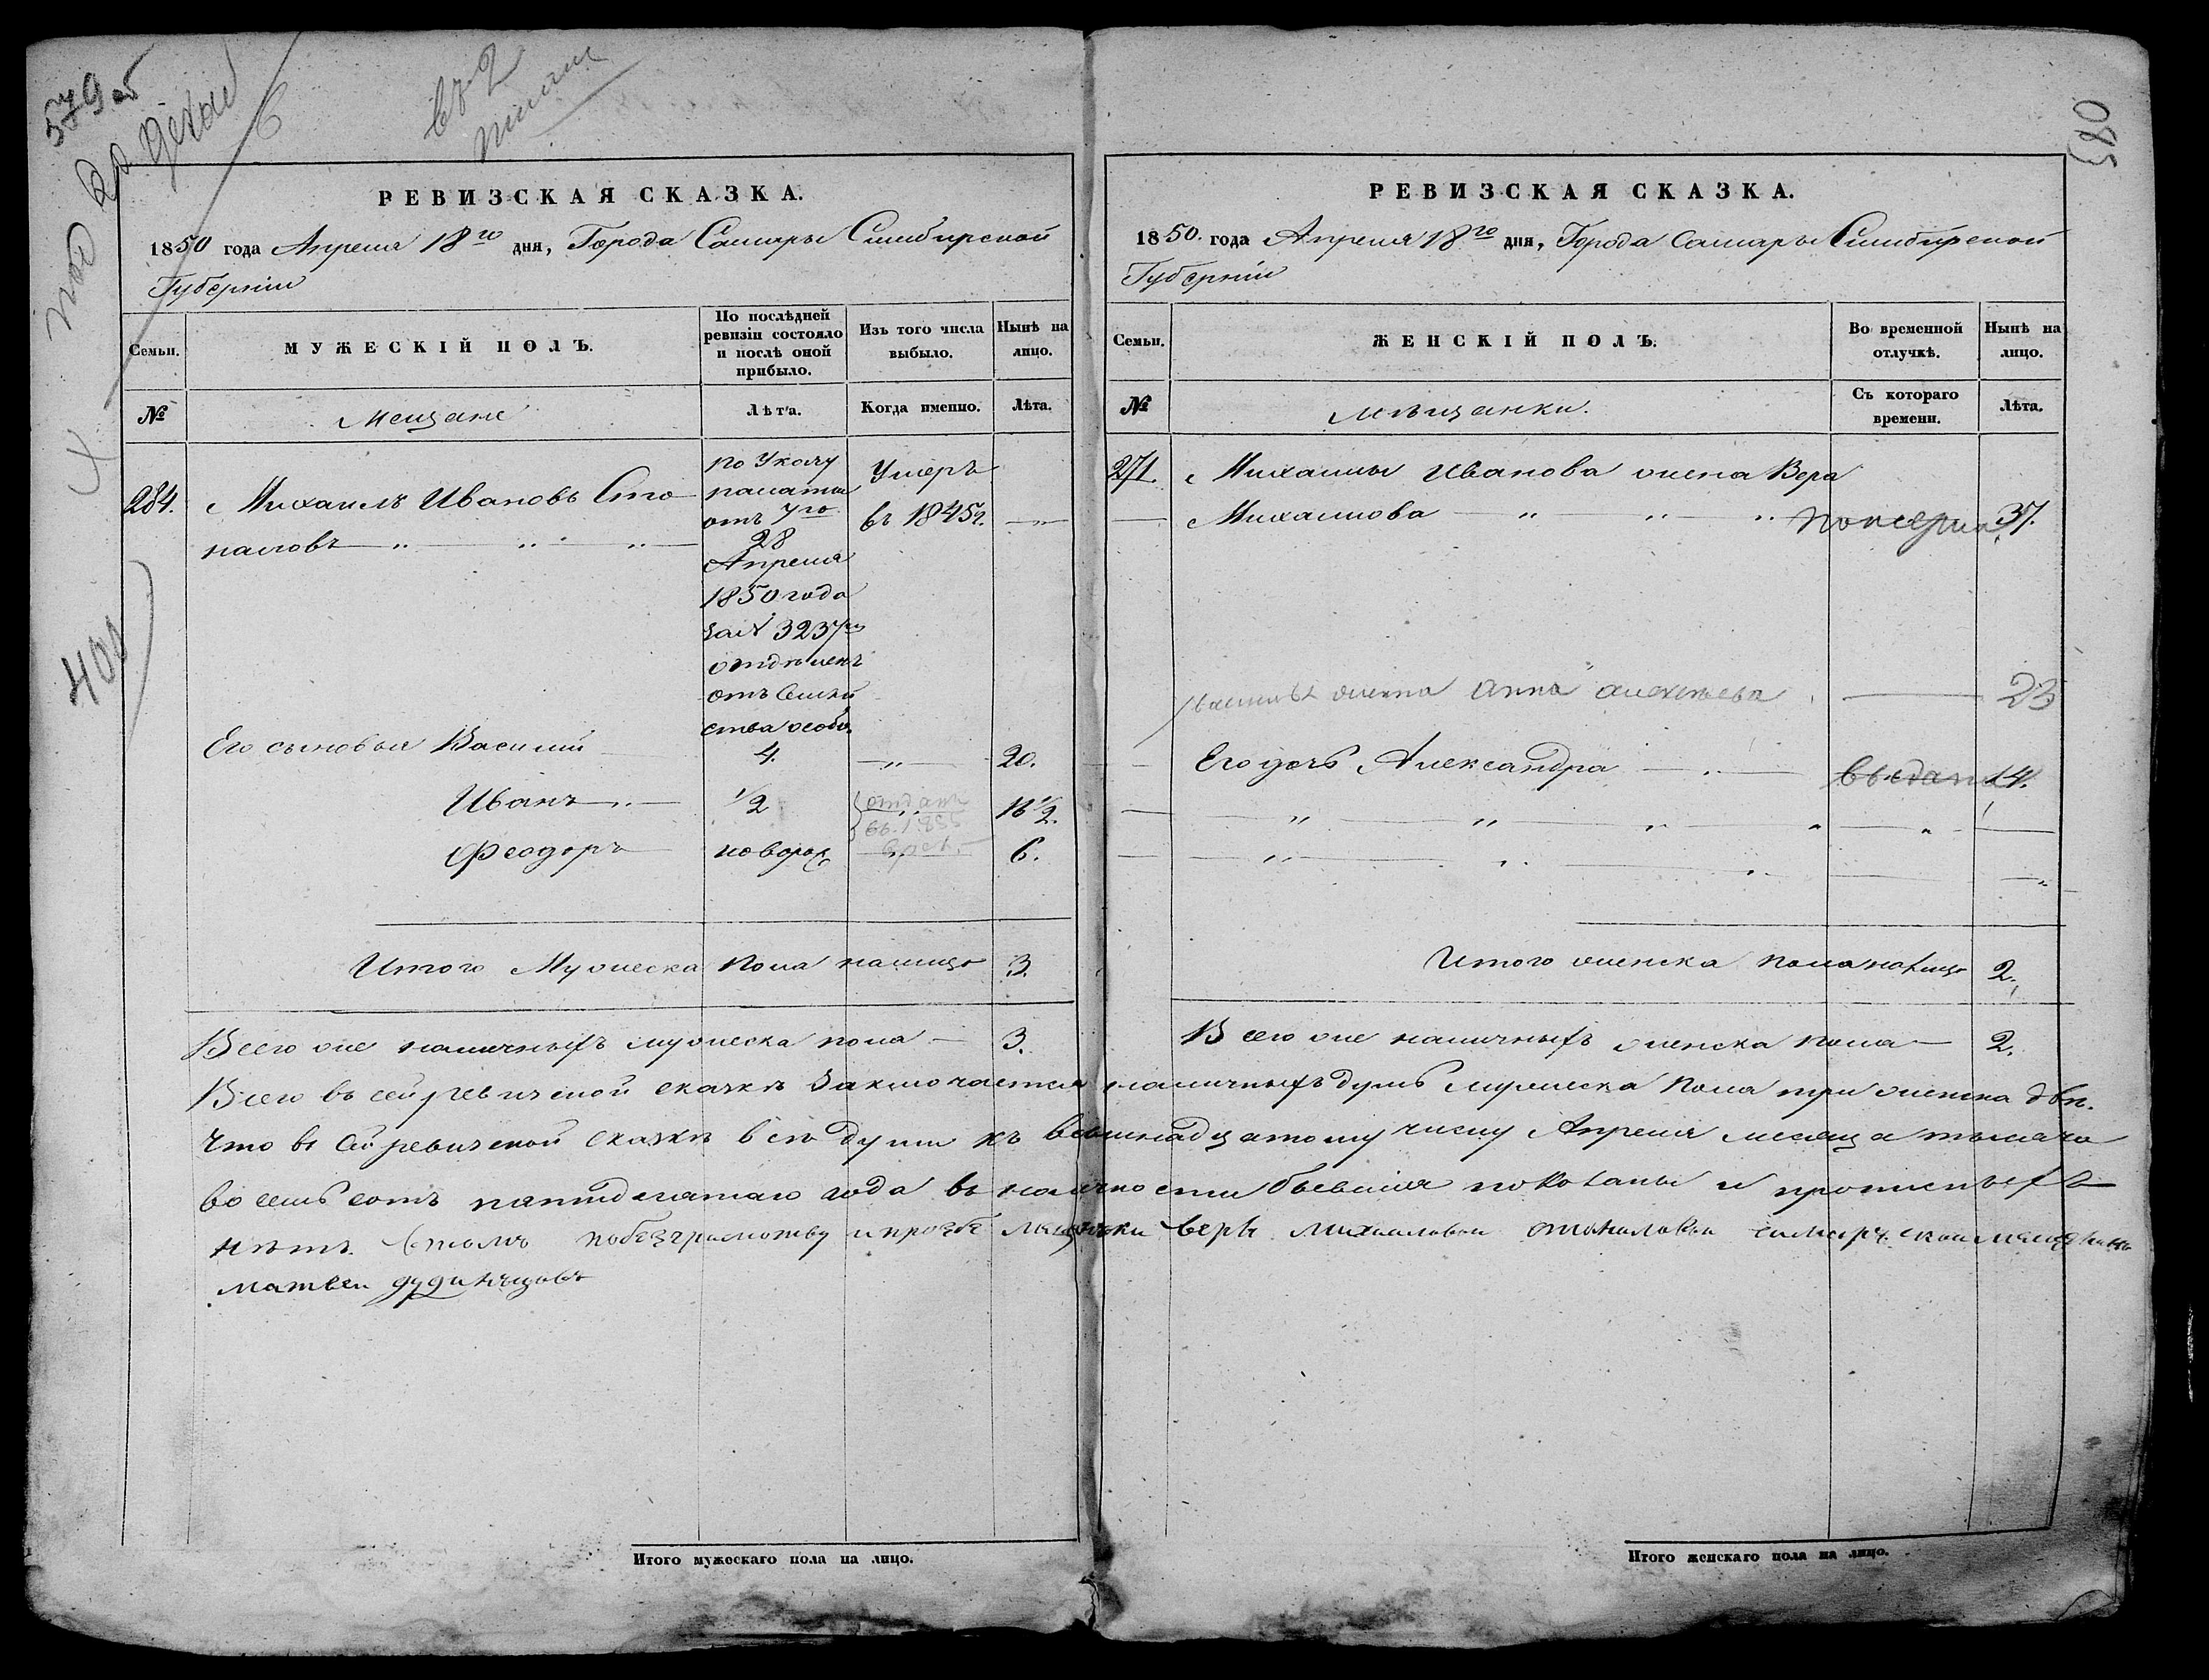 579 об
въ 2
РЕВИЗСКАЯ СКАЗКА.
1850 года Апреля 18го дня, Города Самары Симбирской
Губернiи
Семьи.
МУЖЕСКІЙ ПОЛЪ.
По послѣдней
ревизіи состояло
и послѣ оной
прибыло.
Изъ того числа
выбыло.
Нынѣ на
лицо.
№
Мещане
Лѣта.
Когда именно.
Лѣта.
284.
Михаилъ Ивановъ Сто
наловъ
по Указу
палаты
отъ 7го
28
Апреля
1850 года
за № 3237м
отдѣленъ
отъ Семей
ства особо.
Умеръ
въ 1845г.
Его сыновья Василий
4.
20.
Иванъ
1/2
отданъ
въ 1855
16 1/2.
Феодоръ
новорож
6.
Итого Мужеска Пола налицо 3.
Всего же наличныхъ мужеска пола 3.
580
РЕВИЗСКАЯ СКАЗКА.
1850. года Апреля 18го дня, Города Самары Симбирской
Губернiи
Семьи.
ЖЕНСКІЙ ПОЛЪ.
Во временной
отлучкѣ.
Нынѣ на
лицо.
№
мѣщанки.
Съ котораго
времени.
Лѣта.
271.
Михаилы Иванова жена Вера
Михаилова
37.
Василья жена Анна Алексеева
23
Его дочь Александра
выдан
14.
Итого женска пола налицо 2.
Всего же наличныхъ женска пола 2.
Всего въ сей ревизской сказкѣ Заключается наличныхъ душъ мужеска Пола три женска двѣ.
Что въ сей ревизской сказкѣ всѣ души къ восемнадцатому числу Апреля месяца тысяча
восемьсотъ пятидесятаго года въ наличности бывшия показаны и прописныхъ
нѣтъ. Втомъ побезграмотству и прозбе мещанки Веры Михаиловой
матвеи дудинцовъ
Итого мужескаго пола на лицо.
Итого женскаго пола на лицо.